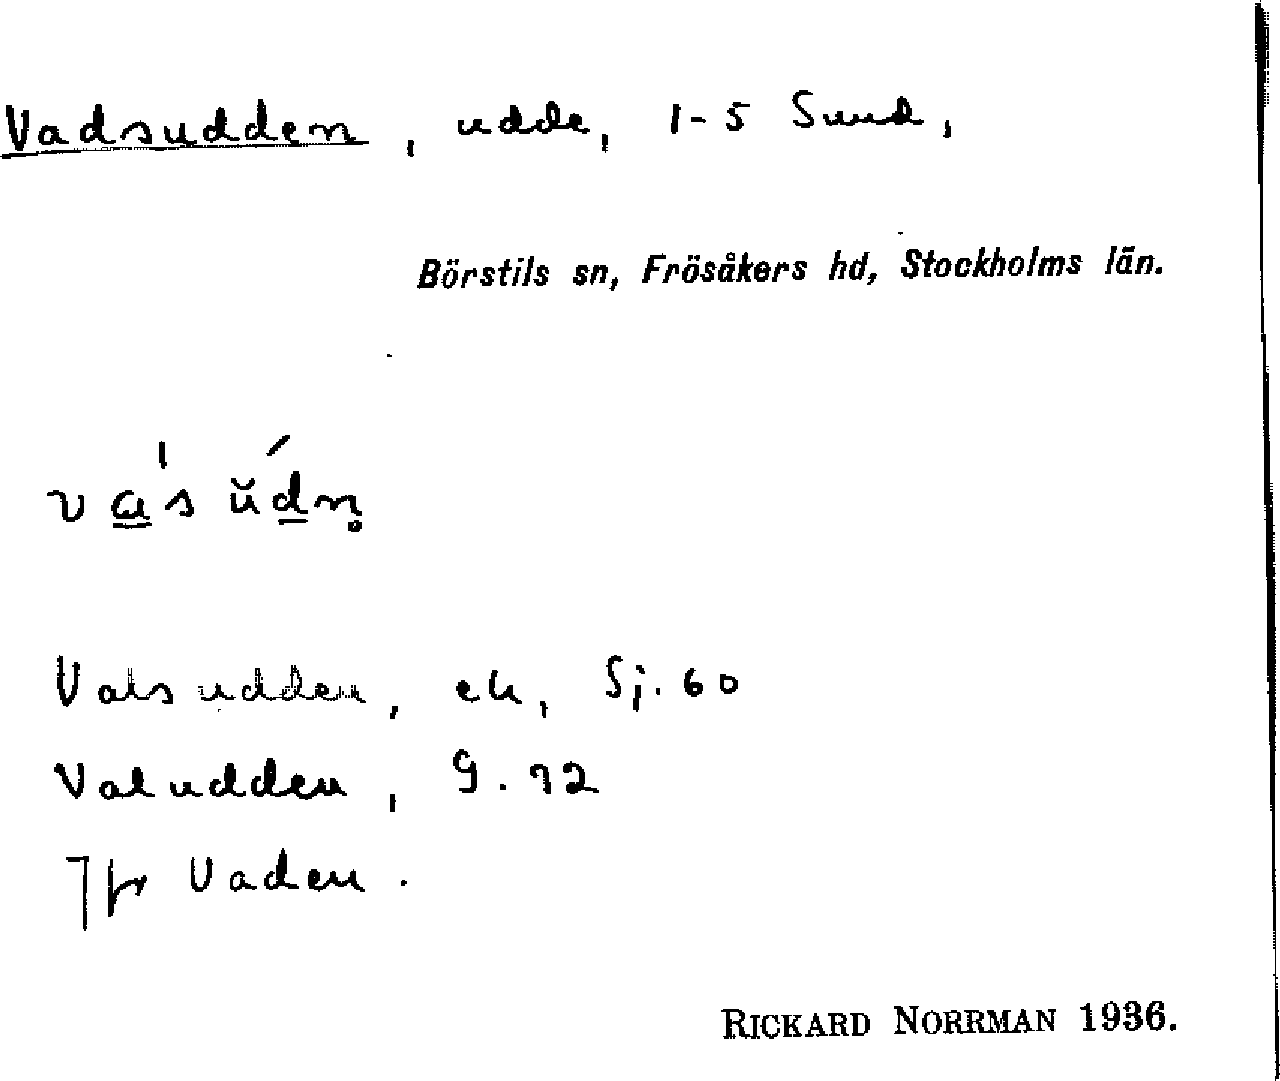 Vadsudden, udde, 1-5 Sund,
Börstils sn, Frösåkers hd, Stockholms län.
Valsudden, ek, Sj. 60
Valudden, G. 72
Jfr Vaden.
RICKARD NORRMAN 1936.